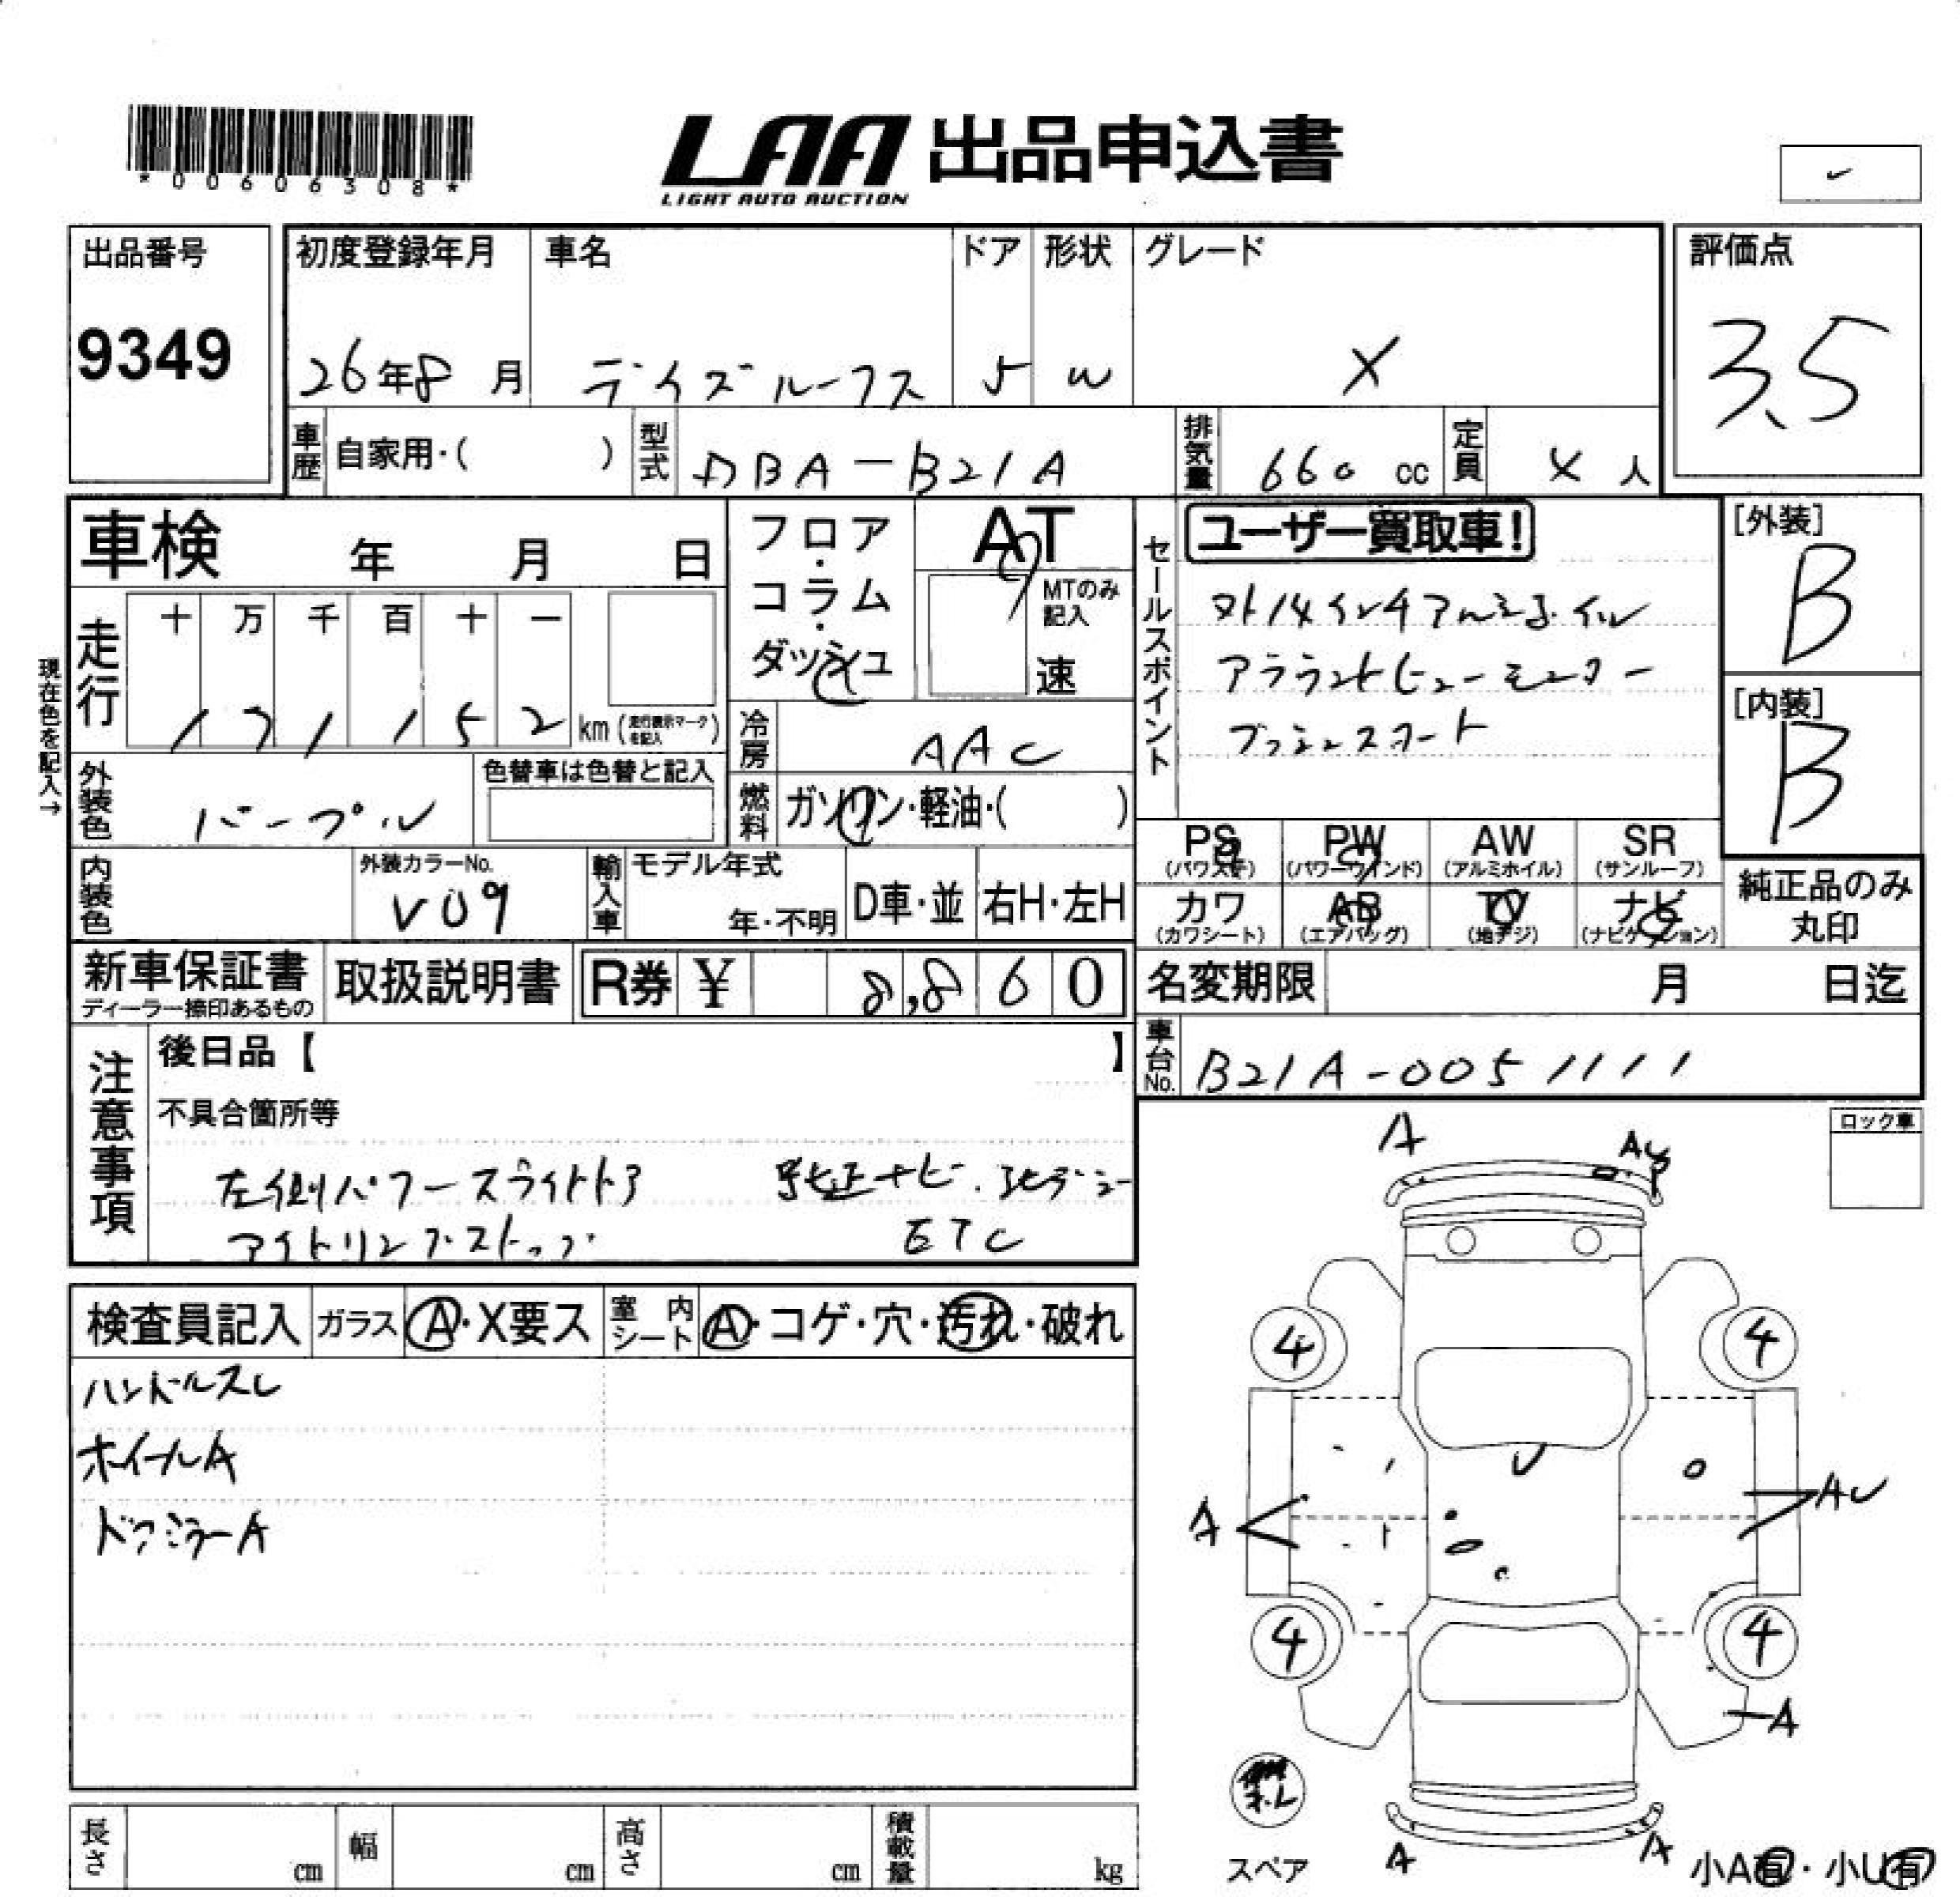 *00606308*
LAA 出品申込書
LIGHT AUTO AUCTION
出品番号
9349
初度登録年月
26年8月
車名
デイズルークス
ドア
5
形状
W
グレード
X
評価点
3.5
車歴 自家用・( )
型式 DBA-B21A
排気量 660 cc
定員 4人
車検 年 月 日
フロア・コラム・ダッシュ
AT
MTのみ記入
速
セールスポイント
ユーザー買取車!
アラウンドビューモニター
プッシュスタート
[外装]
B
[内装]
B
現在色を記入→
走行
十 万 千 百 十 一
171152 km (走行表示マークを記入)
冷房 AAC
外装色 パープル
色替車は色替と記入
燃料 ガソリン・軽油・( )
PS (パワステ)
PW (パワーウインド)
AW (アルミホイル)
SR (サンルーフ)
内装色
外装カラーNo.
V09
輸入車 モデル年式
年・不明
D車・並
右H・左H
カワ (カワシート)
AB (エアバッグ)
TV (地デジ)
ナビ (ナビゲーション)
純正品のみ丸印
新車保証書
ディーラー捺印あるもの
取扱説明書
R券 ¥ 8,860
名変期限 月 日迄
車台No. B21A-0051111
注意事項
後日品【 】
不具合箇所等
左側パワースライドドア 純正ナビ.地デジ
アイドリングストップ ETC
ロック車
検査員記入
ガラス A・X要ス
室内シート A・コゲ・穴・汚れ・破れ
ハンドルスレ
ホイールA
ドアミラーA
A
AU
4
4
A
U
AU
4
4
A
スペア
A
A
小A有・小U有
長さ cm
幅 cm
高さ cm
積載量 kg